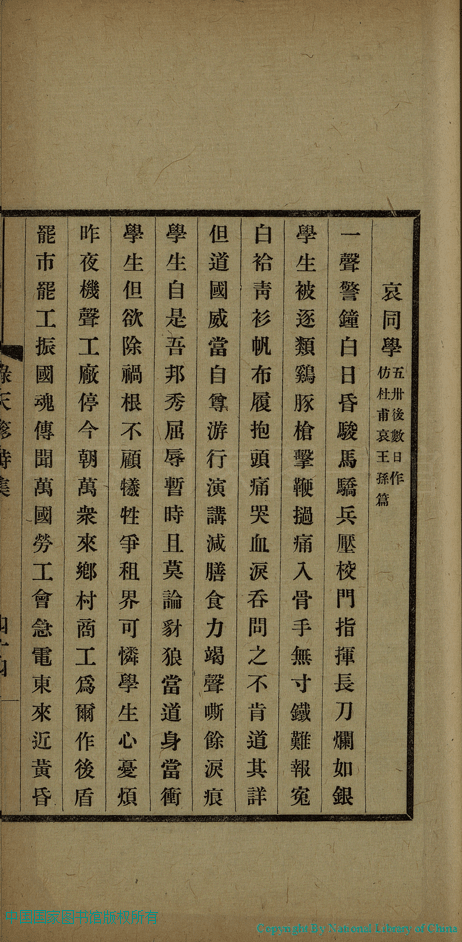 哀同學 五卅後數日作仿杜甫哀王孫篇
一聲警鐘白日昏駿馬驕兵壓校門指揮長刀爛如銀
學生被逐類鷄豚槍擊鞭撾痛入骨手無寸鐵難報寃
白袷靑衫帆布履抱頭痛哭血淚吞問之不肯道其詳
但道國威當自尊游行演講減膳食力竭聲嘶餘淚痕
學生自是吾邦秀屈辱暫時且莫論豺狼當道身當衝
學生但欲除禍根不顧犧牲爭租界可憐學生心憂煩
昨夜機聲工廠停今朝萬衆來鄉村商工爲爾作後盾
罷市罷工振國魂傳聞萬國勞工會急電東來近黃昏
Copyright By National Library of China